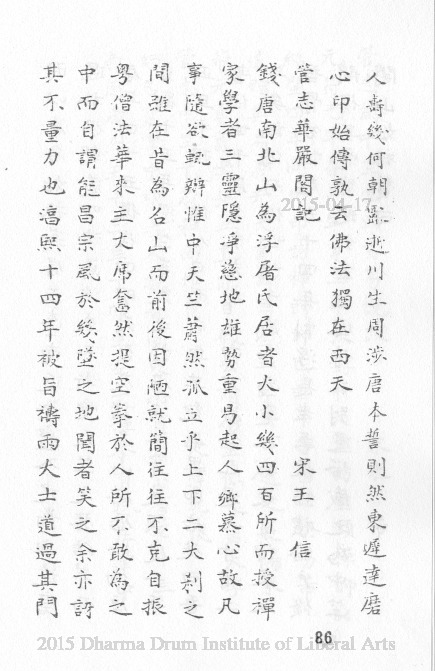 人壽幾何朝逝川生周涉唐本誓則然東遲達磨
心印始傳孰云佛法獨在西天
管志華嚴閣記 宋王 信
錢唐南北山為浮屠氏居者大小幾四百所而授禪
家學者三靈隱淨慈地雄勢重易起人鄉慕心故凡
事隨欲惟中天竺蕭然孤立乎上下二大剎之
間雖在昔為名山而前後因陋就簡往往不克自振
粵僧法華來主大席奮然提空拳於人所不敢為之
中而自謂能昌宗風於幾墜之地聞者笑之余亦訝
其不量力也淳熙十四年被旨禱雨大士道過其門
2015-04-17
86
2015 Dharma Drum Institute of Liberal Arts